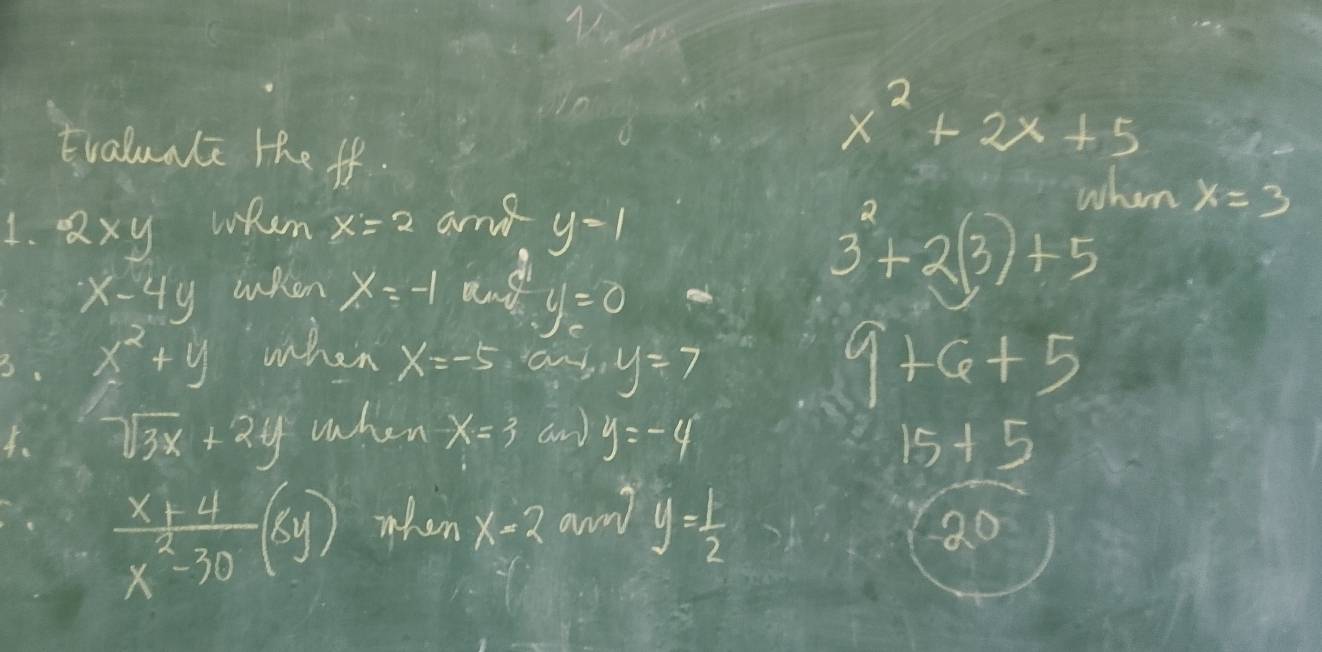 Evaluate the ff.
1. 2xy when x=2 and y=1
x-4y when x=-1 and y=0
3. x²+y when x=-5 and y=7
4. √3x + 2y when x=3 and y=-4
x+4
x²-30 (8y) when x=2 and y=1/2
x² + 2x + 5
when x=3
3² + 2(3) + 5
9+6+5
15+5
20